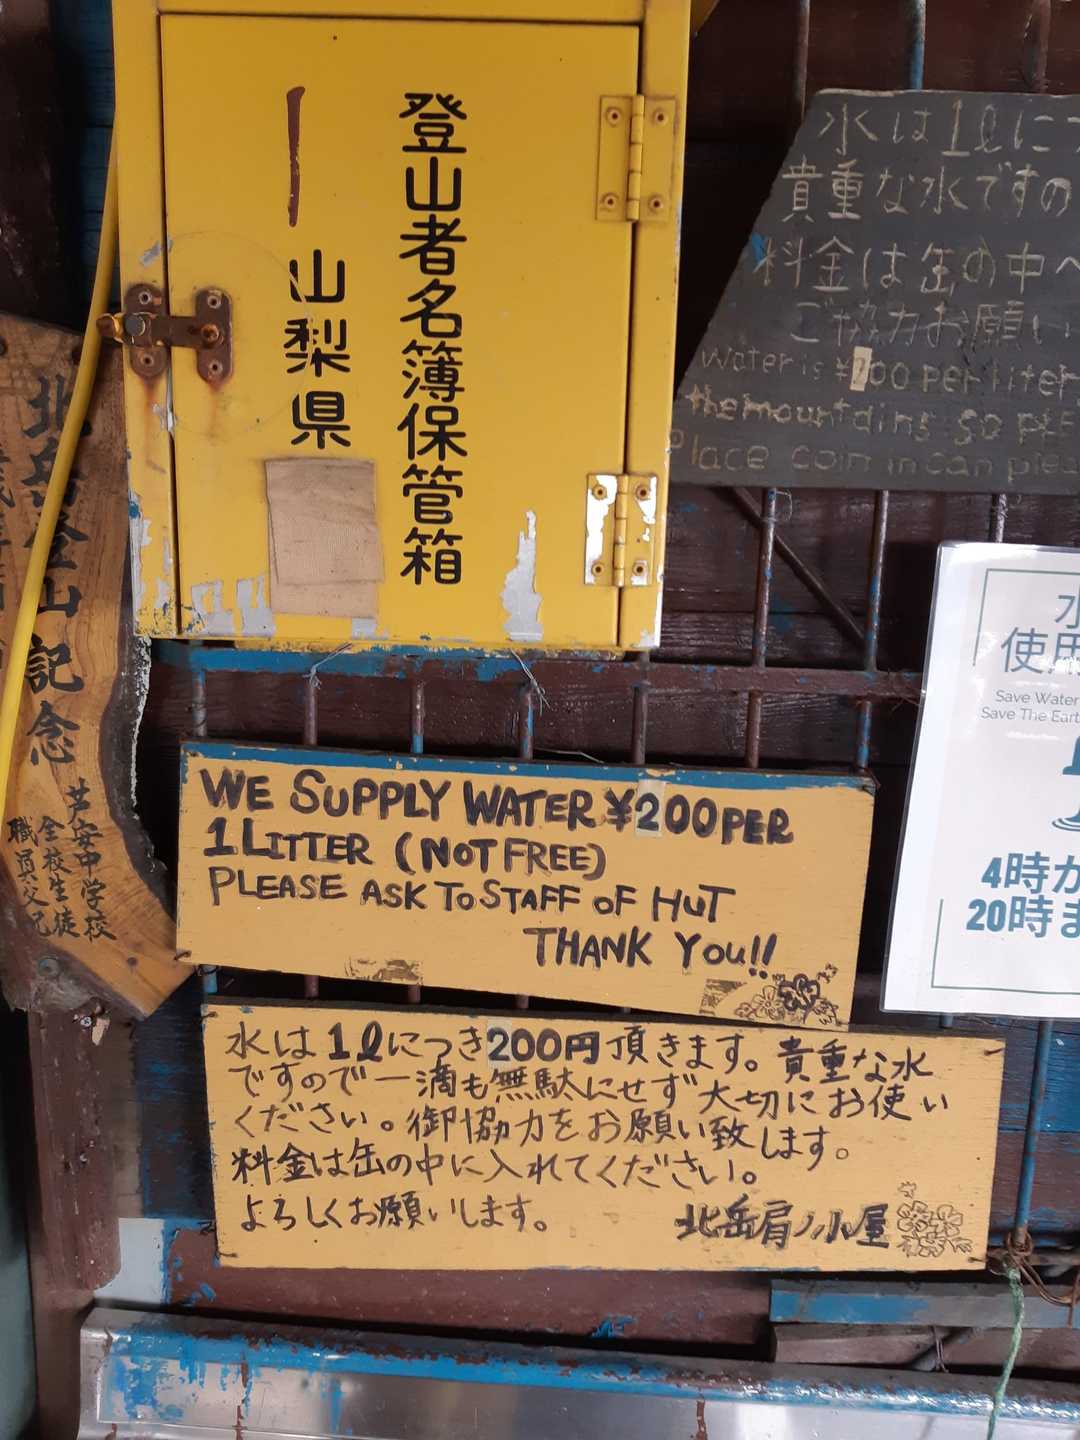 登山者名簿保管箱
山梨県
水は1ℓに
貴重な水ですの
料金は缶の中へ
ご協力お願い
water is ¥200 per liter
the mountains so
Place coin in can
北岳登山記念
芦安中学校
全校生徒
職員父兄
水
使用
Save Water
Save The Earth
4時か
20時ま
WE SUPPLY WATER ¥200 PER
1 LITTER (NOT FREE)
PLEASE ASK TO STAFF OF HUT
THANK YOU!!
水は1ℓにつき200円頂きます。貴重な水
ですので一滴も無駄にせず大切にお使い
ください。御協力をお願い致します。
料金は缶の中に入れてください。
よろしくお願いします。
北岳肩ノ小屋